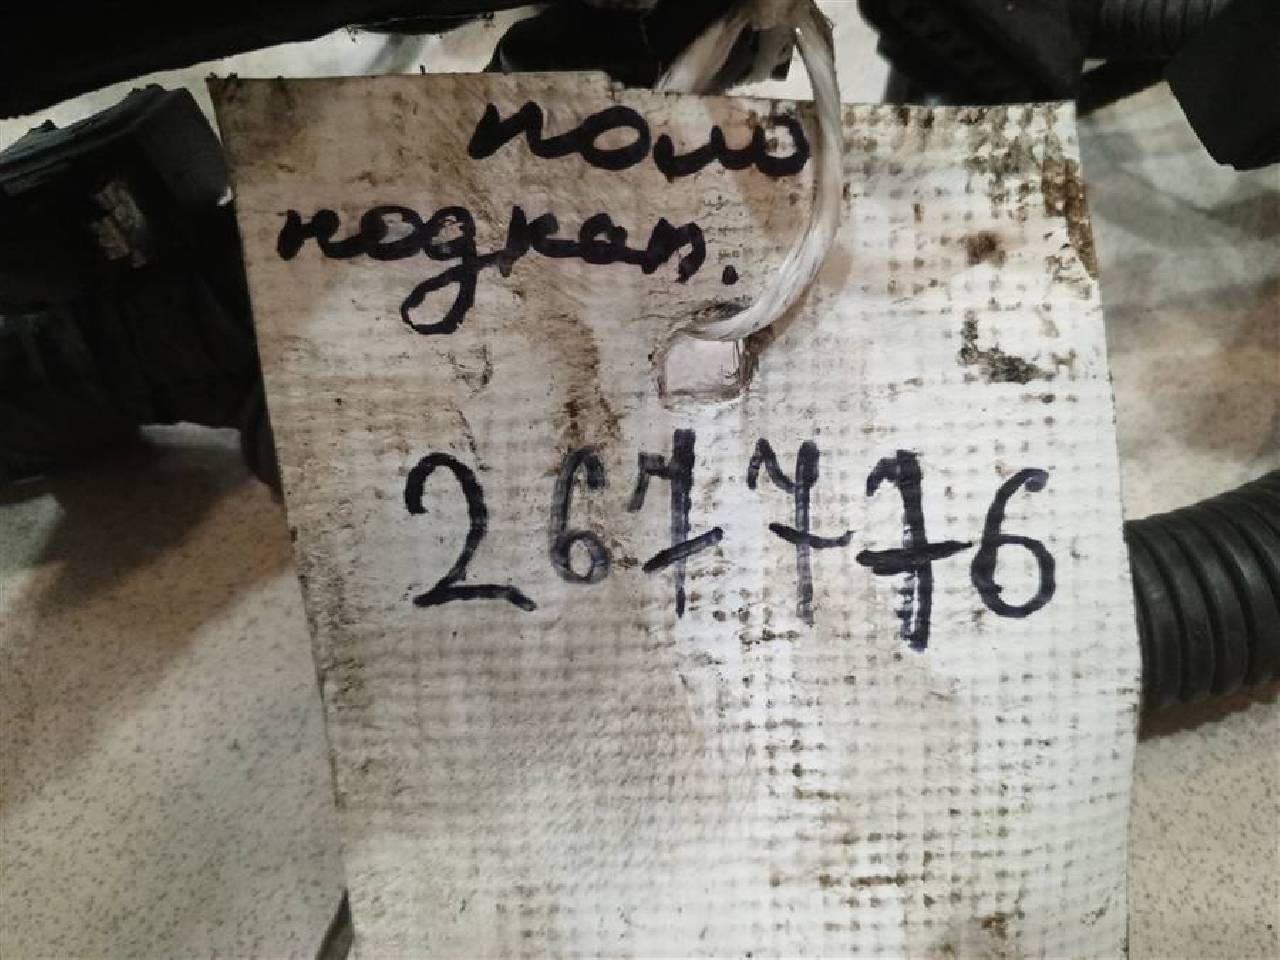 поло
подкап.
267776